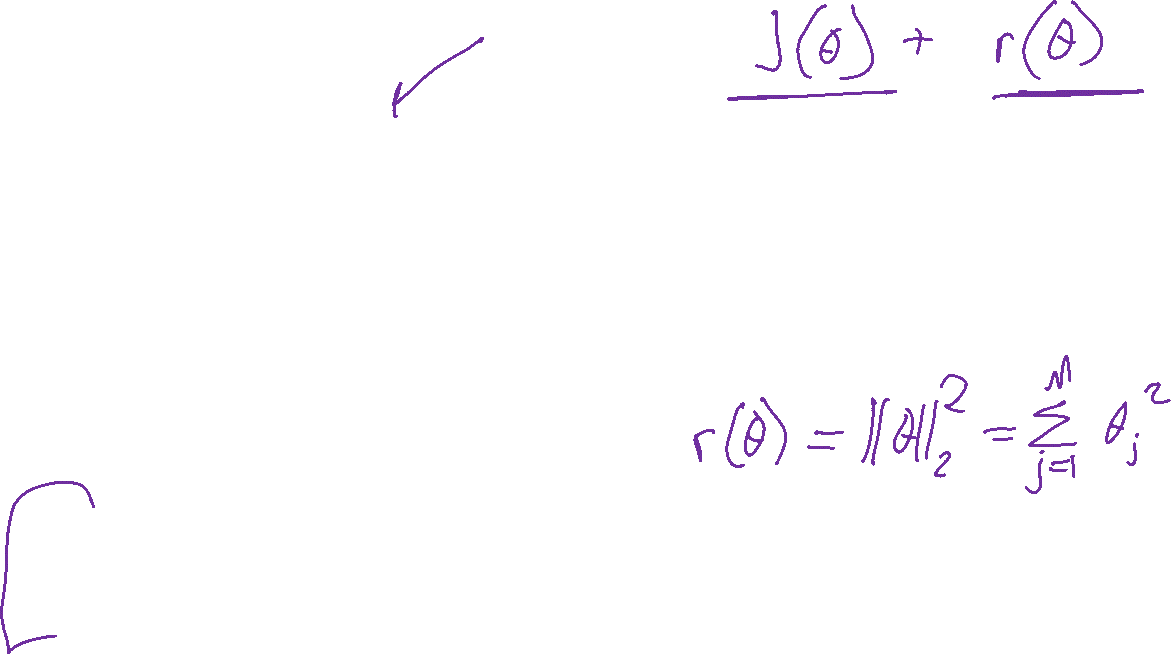 J(θ) + r(θ)
r(θ) = ||θ||₂² = ∑ⱼ₌₁ᴹ θⱼ²